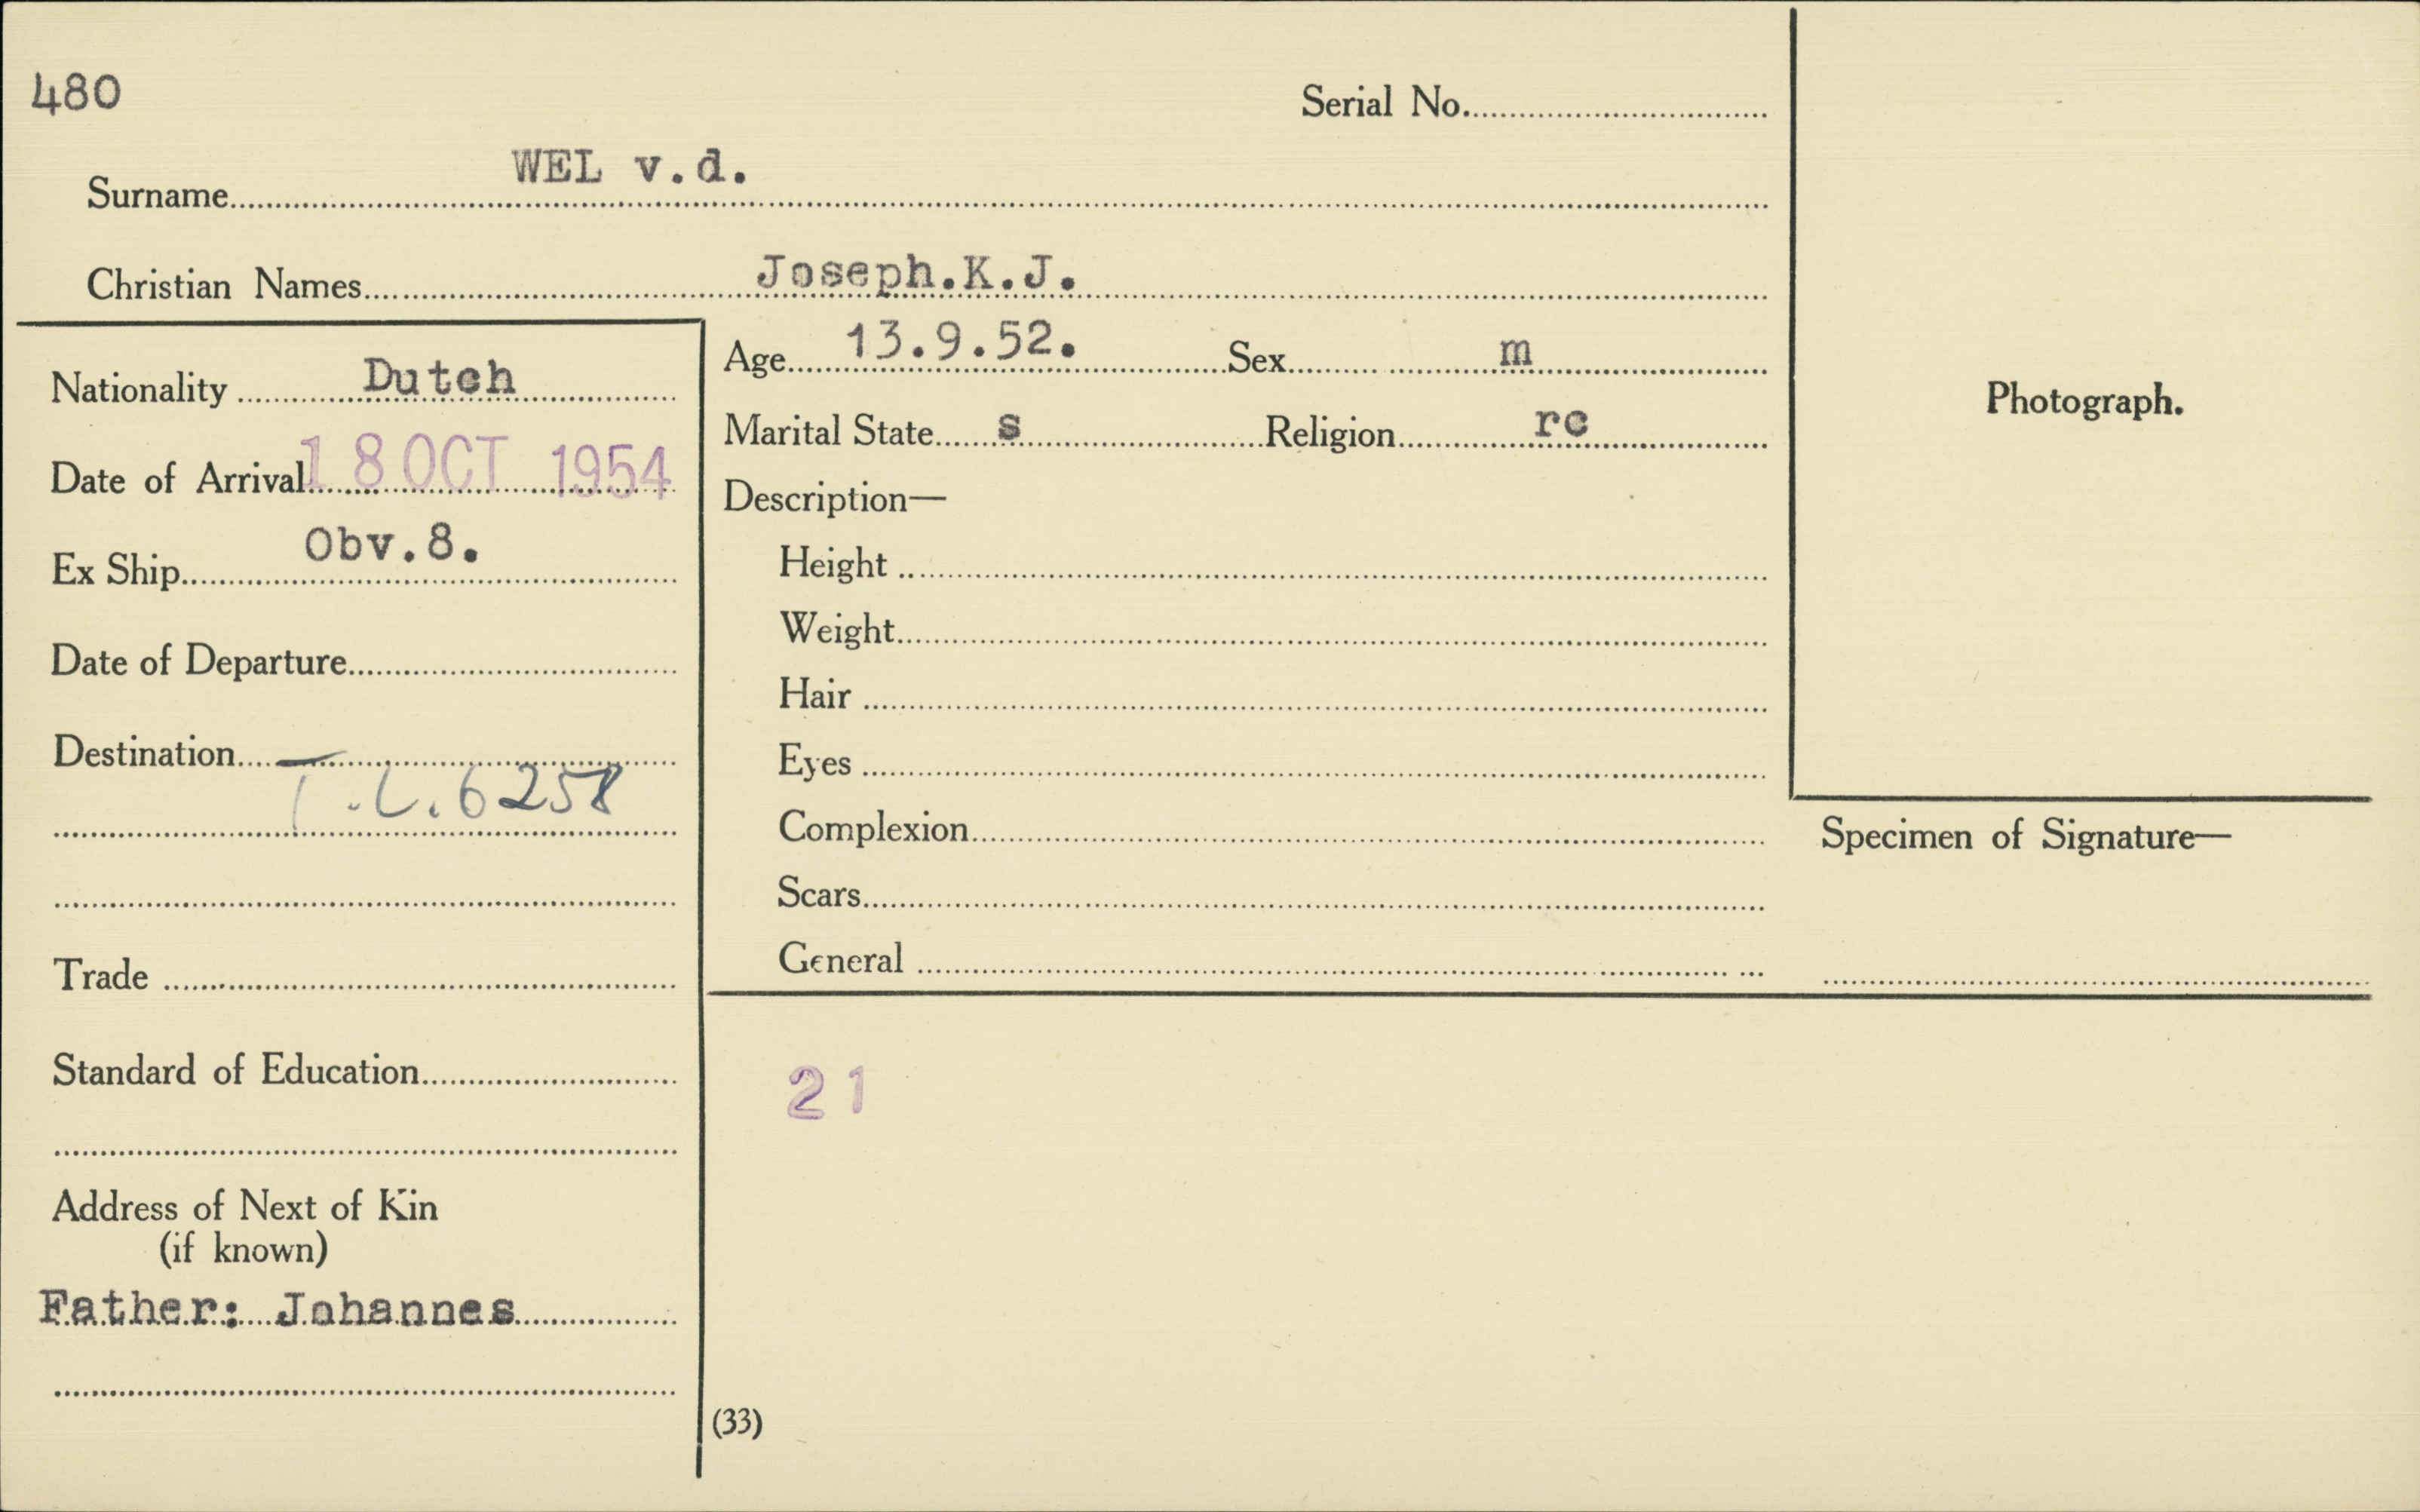 480
Serial No.
Surname WEL v.d.
Christian Names Joseph.K.J.
Nationality Dutch
Date of Arrival 18 OCT 1954
Ex Ship Obv.8.
Date of Departure
Destination
T.L. 6258
Trade
Standard of Education
Address of Next of Kin
(if known)
Father: Johannes
Age 13.9.52. Sex m
Marital State s Religion rc
Description—
Height
Weight
Hair
Eyes
Complexion
Scars
General
Photograph.
Specimen of Signature—
21
(33)